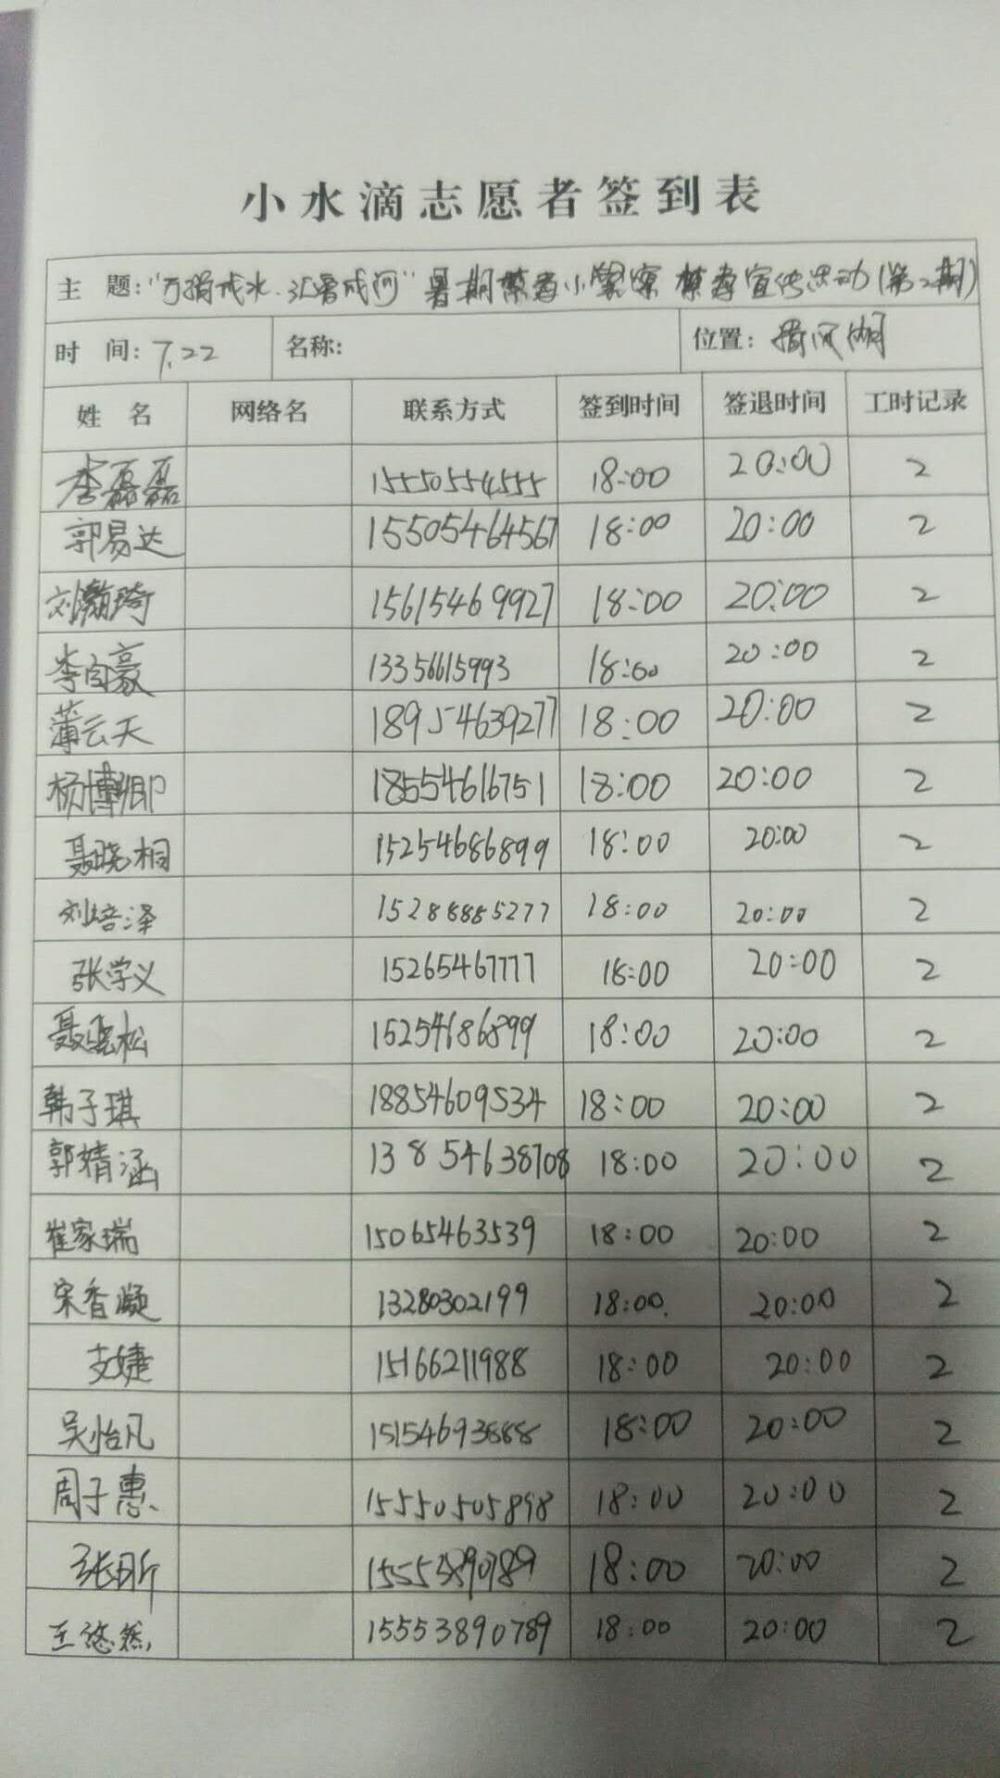 小水滴志愿者签到表
主 题:"万涓成水.汇智成河"暑期禁毒小警察 禁毒宣传活动(第2期)
时 间: 7.22 名称: 位置: 揽风湖
姓 名 网络名 联系方式 签到时间 签退时间 工时记录
李磊磊 15550554555 18:00 20:00 2
郭易达 15505464567 18:00 20:00 2
刘灏琦 15615469927 18:00 20:00 2
李自豪 13356615993 18:00 20:00 2
蒲云天 18954639277 18:00 20:00 2
杨博卿 18554616751 18:00 20:00 2
聂晓桐 15254686899 18:00 20:00 2
刘培泽 15288885277 18:00 20:00 2
张学义 15265467777 18:00 20:00 2
聂晓松 15254686899 18:00 20:00 2
韩子琪 18854609534 18:00 20:00 2
郭婧涵 13854638708 18:00 20:00 2
崔家瑞 15065463539 18:00 20:00 2
宋香凝 13280302199 18:00 20:00 2
支婕 15166211988 18:00 20:00 2
吴怡凡 15154693888 18:00 20:00 2
周子惠 15550505898 18:00 20:00 2
张昕 15553890789 18:00 20:00 2
王悠然 15553890789 18:00 20:00 2